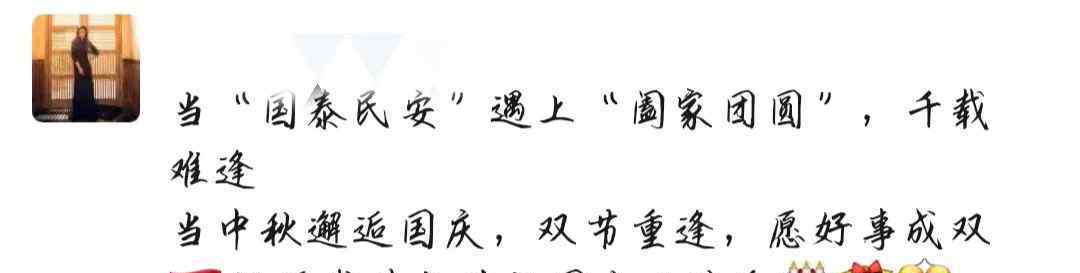 当“国泰民安”遇上“阖家团圆”，千载
难逢
当中秋邂逅国庆，双节重逢，愿好事成双